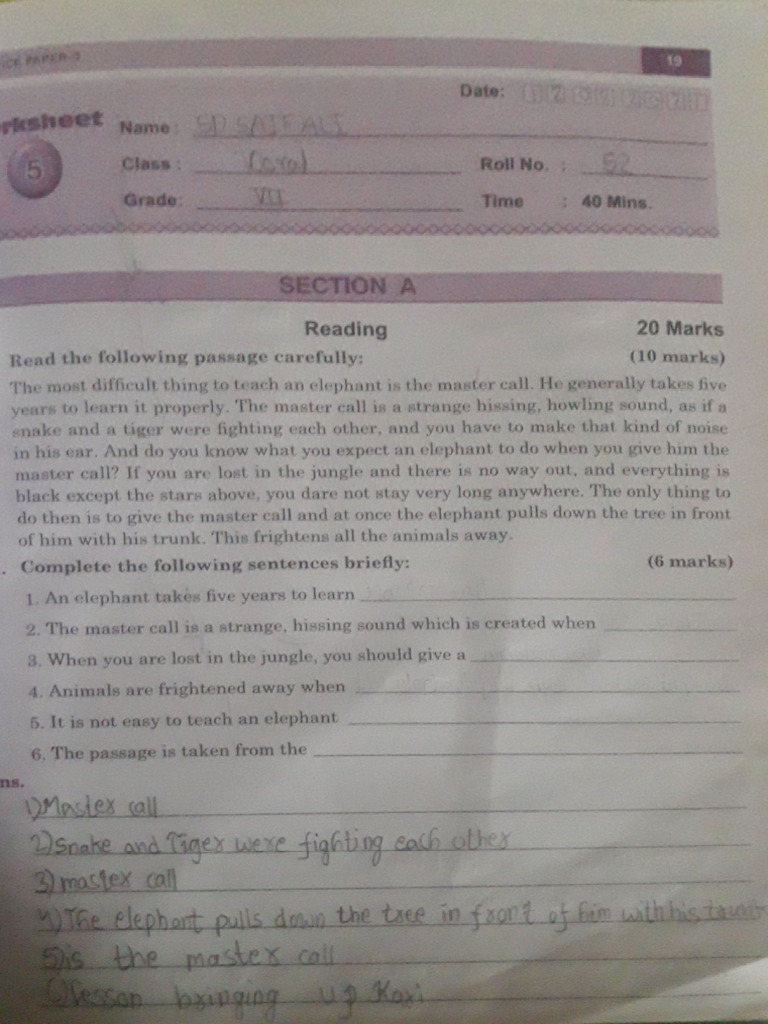 ICE PAPER-5
19
Date: 17 09 2021
rksheet
Name : SD SAIF ALI
5
Class : Coral
Roll No. : 52
Grade: VII
Time : 40 Mins.
SECTION A
Reading 20 Marks
Read the following passage carefully: (10 marks)
The most difficult thing to teach an elephant is the master call. He generally takes five
years to learn it properly. The master call is a strange hissing, howling sound, as if a
snake and a tiger were fighting each other, and you have to make that kind of noise
in his ear. And do you know what you expect an elephant to do when you give him the
master call? If you are lost in the jungle and there is no way out, and everything is
black except the stars above, you dare not stay very long anywhere. The only thing to
do then is to give the master call and at once the elephant pulls down the tree in front
of him with his trunk. This frightens all the animals away.
. Complete the following sentences briefly: (6 marks)
1. An elephant takes five years to learn
2. The master call is a strange, hissing sound which is created when
3. When you are lost in the jungle, you should give a
4. Animals are frightened away when
5. It is not easy to teach an elephant
6. The passage is taken from the
ns.
1) Master call
2) Snake and Tiger were fighting each other
3) master call
4) The elephant pulls down the tree in front of him with his trunk
5) is the master call
6) lesson bringing up Kari